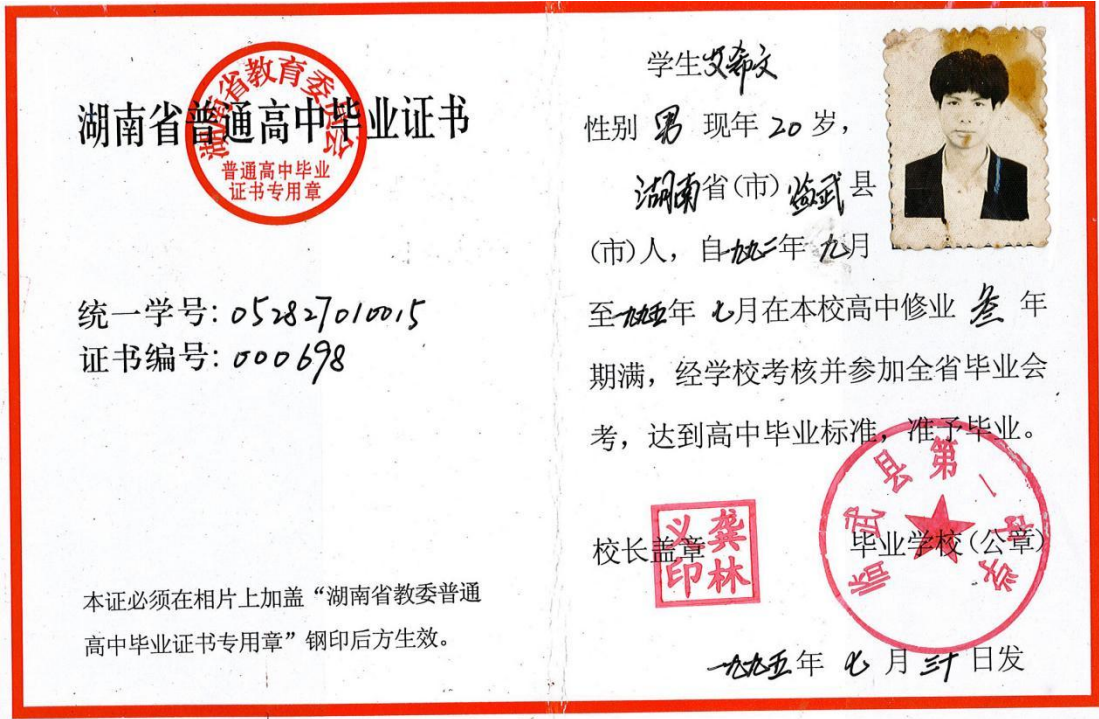 湖南省普通高中毕业证书
湖南省教育委员会
普通高中毕业
证书专用章
统一学号:052827010015
证书编号:000698
本证必须在相片上加盖“湖南省教委普通
高中毕业证书专用章”钢印后方生效。
学生艾希文
性别 男 现年 20 岁,
湖南省(市)临武县
(市)人,自一九九二年 九月
至一九九五年 七月在本校高中修业 叁 年
期满,经学校考核并参加全省毕业会
考,达到高中毕业标准,准予毕业。
校长盖章
龚林义印
毕业学校(公章)
临武县第一中学
一九九五年 七 月 三十 日发